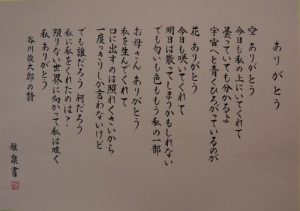 ありがとう
空 ありがとう
今日も私の上にいてくれて
曇っていても分かるよ
宇宙へと青くひろがっているのが
花 ありがとう
今日も咲いていてくれて
明日は散ってしまうかもしれない
でも匂いも色ももう私の一部
お母さん ありがとう
私を生んでくれて
口に出すのは照れくさいから
一度っきりしか言わないけど
でも誰だろう 何だろう
私に私をくれたのは?
限りない世界に向かって私は呟く
私 ありがとう
谷川俊太郎の詩
書